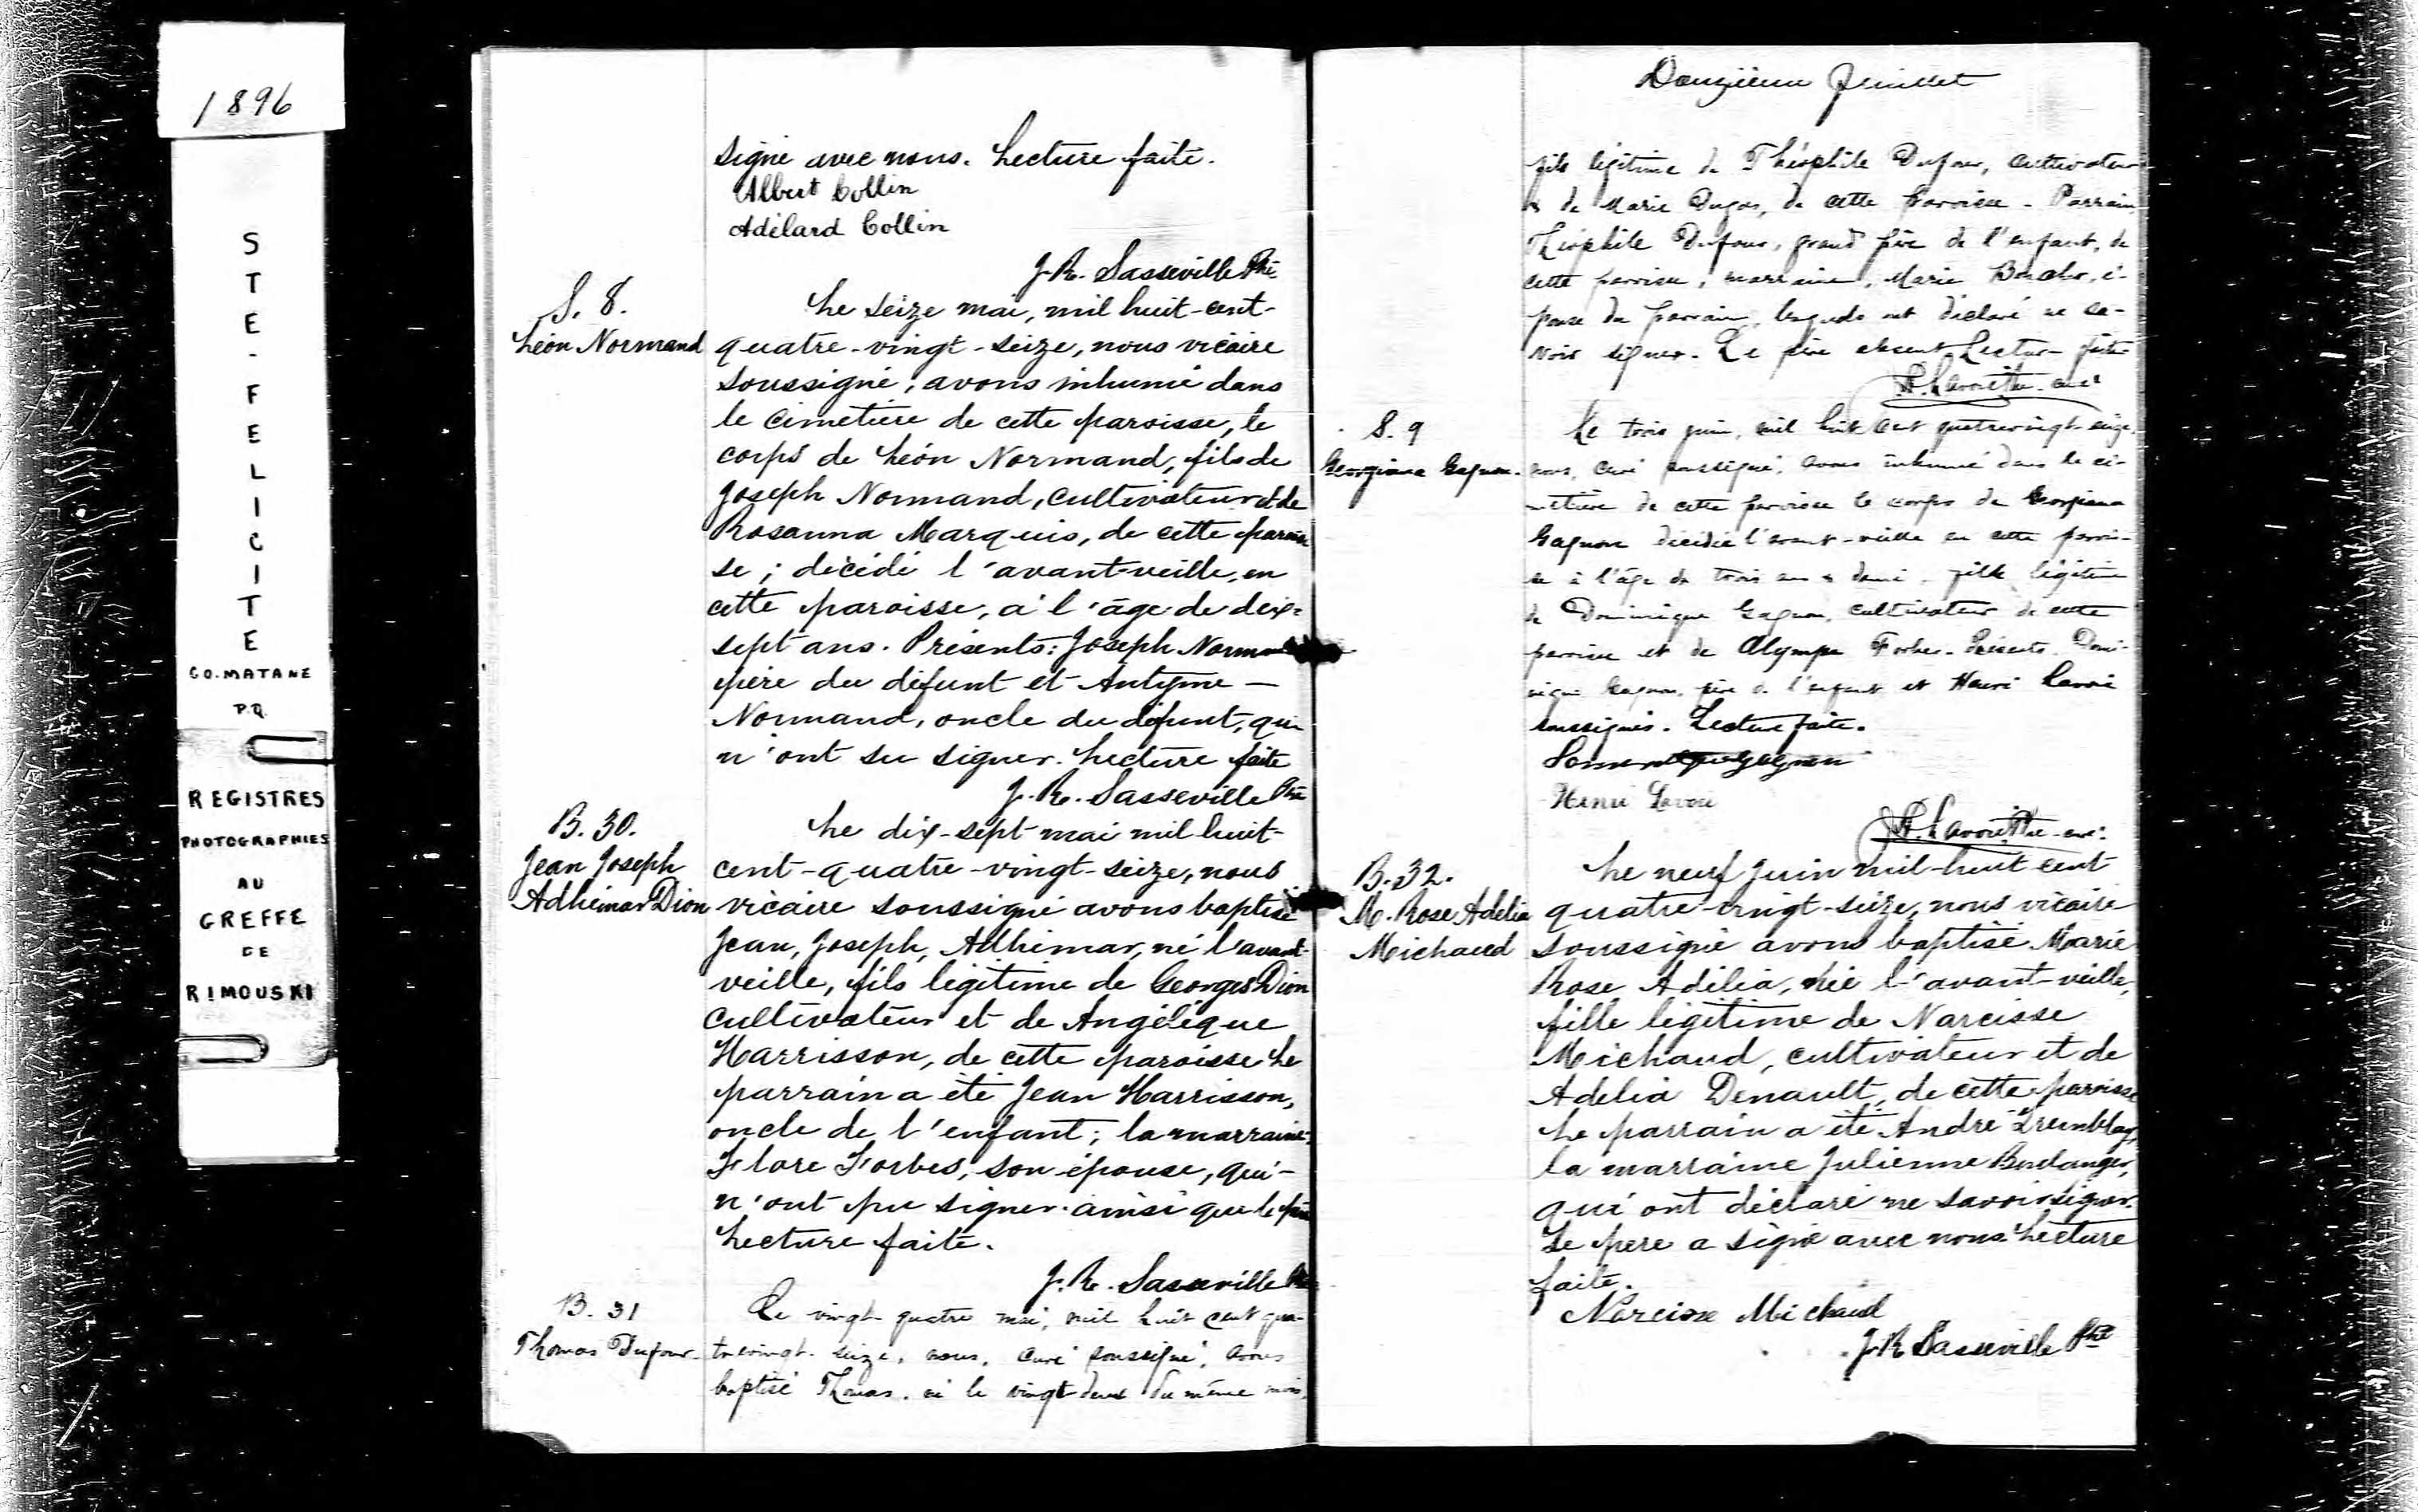 1896
STE-FELICITE
CO. MATANE
P.Q.
REGISTRES
PHOTOGRAPHIES
AU
GREFFE
DE
RIMOUSKI
signé avec nous. Lecture faite.
Albert Collin
Adélard Collin
J. R. Sasseville Ptre
S. 8.
Léon Normand
Le seize mai, mil huit-cent-
quatre-vingt-seize, nous vicaire
soussigné, avons inhumé dans
le cimetière de cette paroisse, le
corps de Léon Normand, fils de
Joseph Normand, cultivateur et de
Rosanna Marquis, de cette parois
se; décédé l'avant-veille, en
cette paroisse, à l'âge de dix-
sept ans. Présents: Joseph Normand
père du défunt et Antyme
Normand, oncle du défunt, qui
n'ont su signer. Lecture faite
J. R. Sasseville Ptre
B. 30.
Jean Joseph
Adhémar Dion
Le dix-sept mai mil huit-
cent-quatre-vingt-seize, nous
vicaire soussigné avons baptisé
Jean, Joseph, Adhémar, né l'avant-
veille, fils légitime de Georges Dion
cultivateur et de Angélique
Harrisson, de cette paroisse Le
parrain a été Jean Harrisson,
oncle de l'enfant; la marraine
Flore Forbes, son épouse, qui
n'ont pu signer ainsi que le père
Lecture faite.
J. R. Sasseville Ptre
B. 31
Thomas Dufour
Le vingt-quatre mai, mil huit cent qua-
trevingt-seize, nous, curé soussigné, avons
baptisé Thomas, né le vingt-deux du même mois,
Douzième feuillet
fils légitime de Théophile Dufour, cultivateur
& de Marie Dugas, de cette paroisse - Parrain,
Théophile Dufour, grand père de l'enfant, de
cette paroisse, marraine, Marie é-
pouse du parrain, lesquels ont déclaré ne sa-
voir signer. Le père absent Lecture faite
curé
S. 9
Georgiana Gagnon.
Le trois juin, mil huit cent quatrevingt-seize,
nous, curé soussigné, avons inhumé dans le ci-
metière de cette paroisse le corps de Georgiana
Gagnon décédée l'avant-veille en cette parois-
se à l'âge de trois ans & demi, fille légitime
de Dominique Gagnon, cultivateur de cette
paroisse et de Olympe Forbes. Présents Domi-
nique Gagnon, père de l'enfant et Henri Lavoie
soussignés. Lecture faite.
Gagnon
Henri Lavoie
curé
B. 32.
M. Rose Adelia
Michaud
Le neuf juin mil-huit cent
quatre-vingt-seize, nous vicaire
soussigné avons baptisé Marie
Rose Adélia, née l'avant-veille,
fille légitime de Narcisse
Michaud, cultivateur et de
Adelia Denault, de cette paroisse
Le parrain a été André Tremblay,
la marraine Julienne Boulanger,
qui ont déclaré ne savoir signer.
Le père a signé avec nous. Lecture
faite.
Narcisse Michaud
J. R. Sasseville Ptre